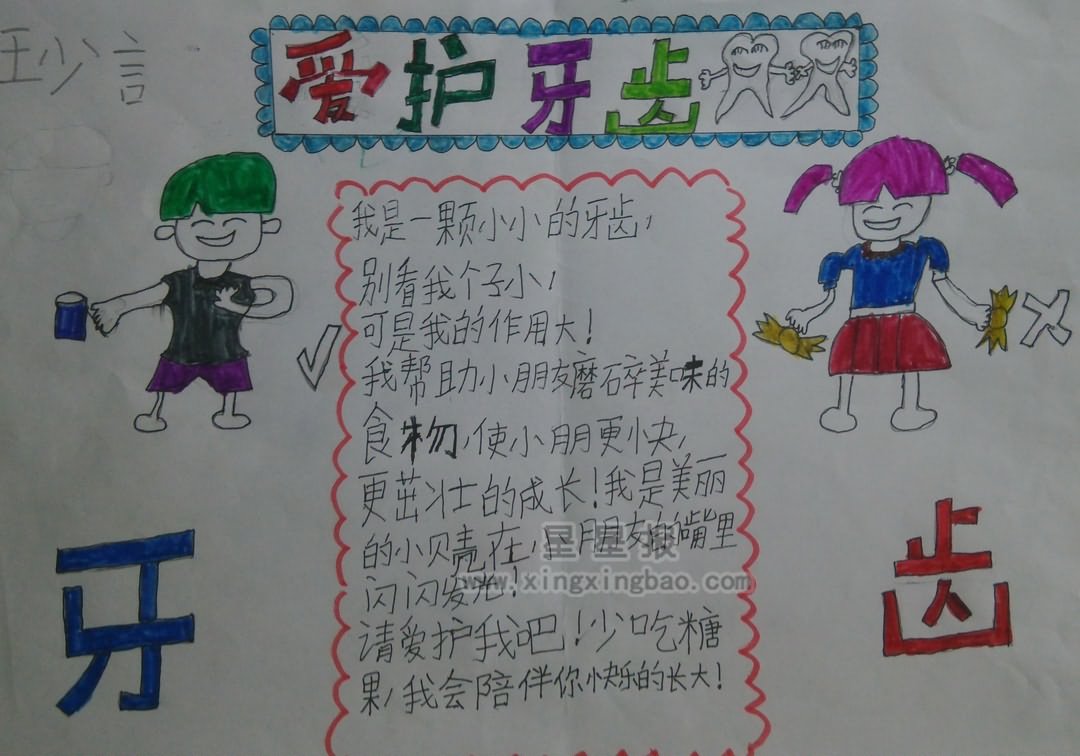 爱护牙齿
汪少言
我是一颗小小的牙齿,
别看我个子小,
可是我的作用大!
我帮助小朋友磨碎美味的
食物,使小朋更快,
更茁壮的成长!我是美丽
的小贝壳在小朋友的嘴里
闪闪发光!
请爱护我吧!少吃糖
果,我会陪伴你快乐的长大!
牙
齿
www.xingxingbao.com